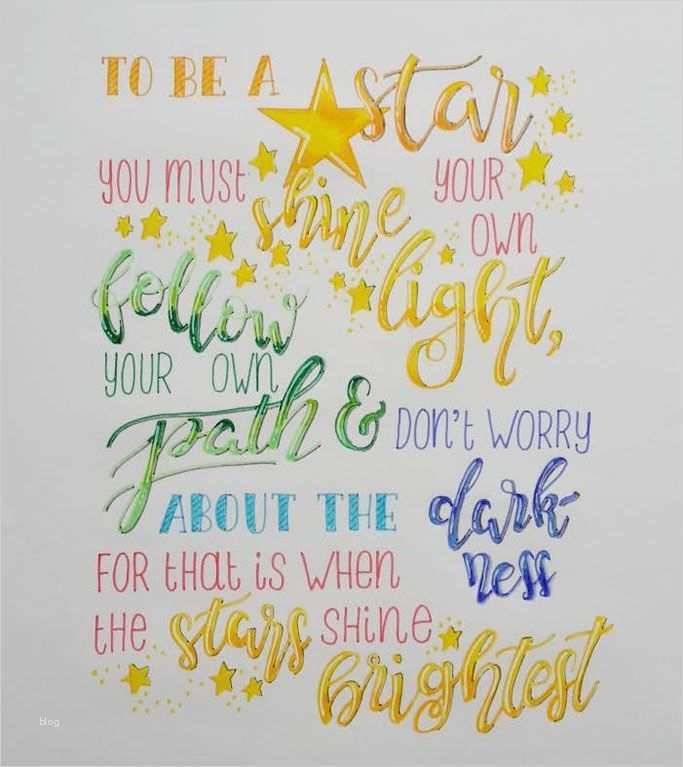 TO BE A star
YOU MUST shine YOUR
OWN
light,
follow
YOUR OWN
path & DON'T WORRY
ABOUT THE dark-
ness
FOR THAT IS WHEN
THE stars SHINE
brightest
blog